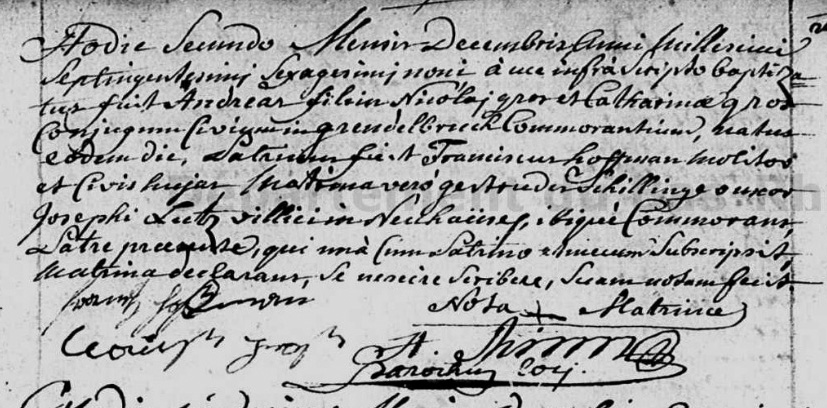 Hodie Secundo Mensis Decembris Anni Millesimi
Septingentesimi Sexagesimi noni à me infrà Scripto baptiza
tus fuit Andreas filius Nicolaj gros et Catharinæ gros
Conjugum Civium in grendelbruch Commorantium, natus
eodem die, Patrinus fuit Franciscus hoffman molitor
et Civis hujas Matrina verò gertrudis Schillinge uxor
Josephi Lutz villici in Neuhausen, ibique Commorans,
Patre præsente, qui unà Cum Patrino et mecum Subscripsit,
Matrina declarans, Se nescire Scribere, Suam notam fecit
Nota + Matrinæ
Parochus loci